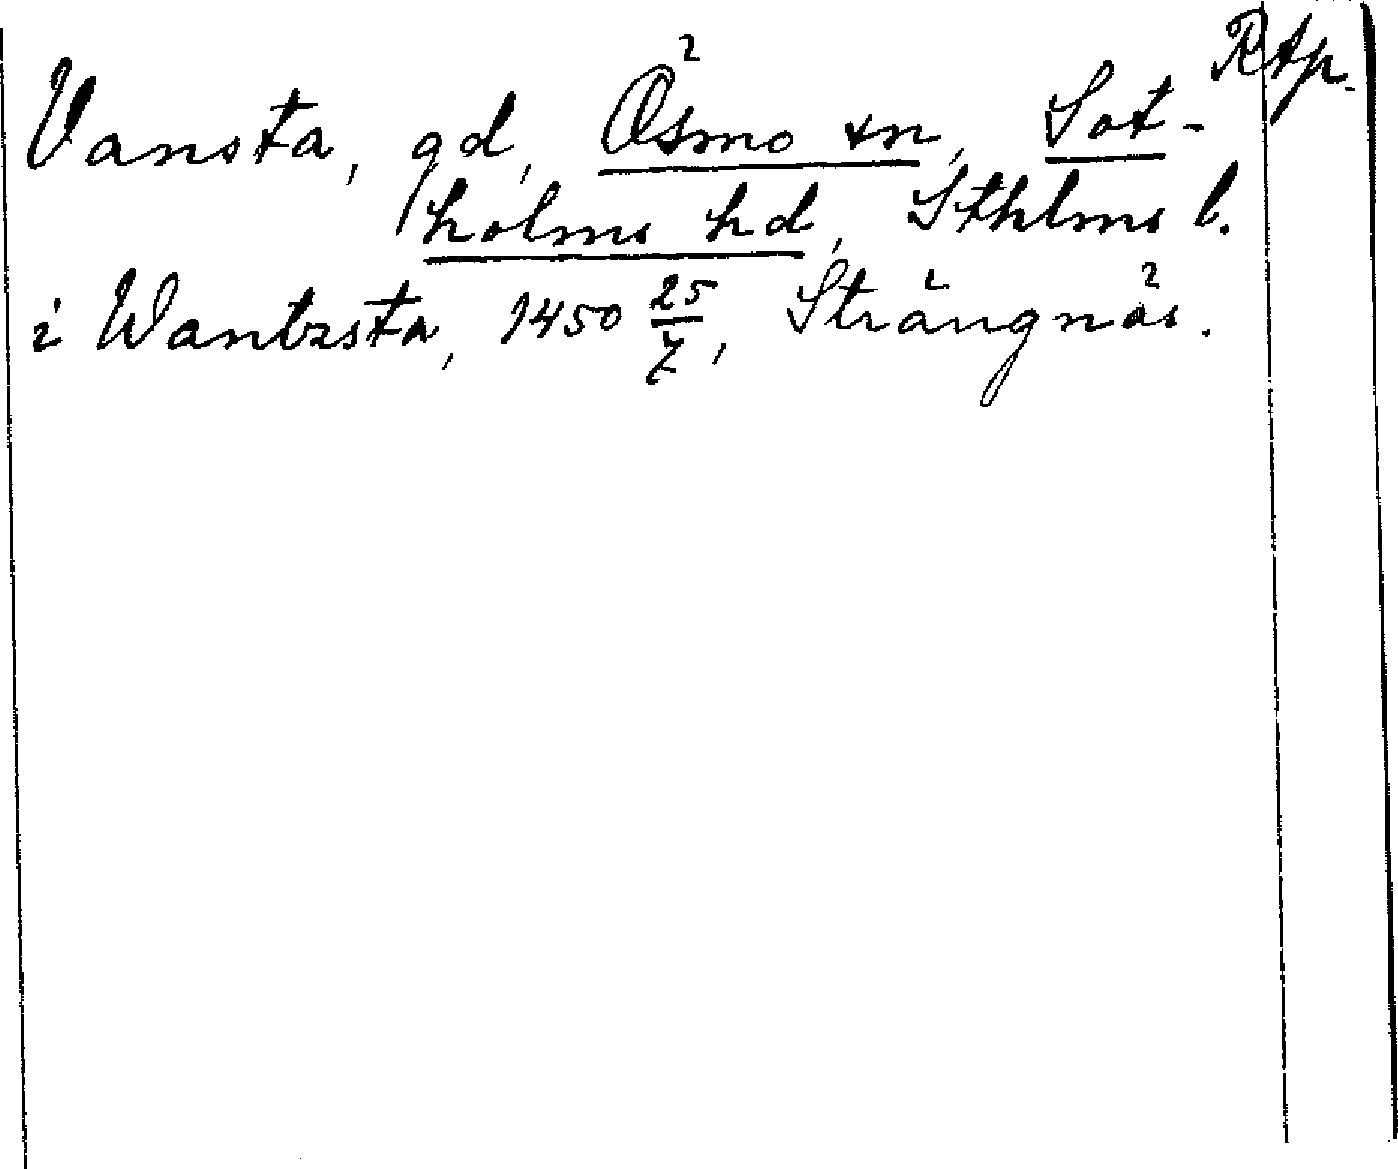 RAp.
Vansta, gd, Ösmo sn, Sot-
holms hd, Sthlms l.
i Wantzsta, 1450 25/7, Strängnäs.